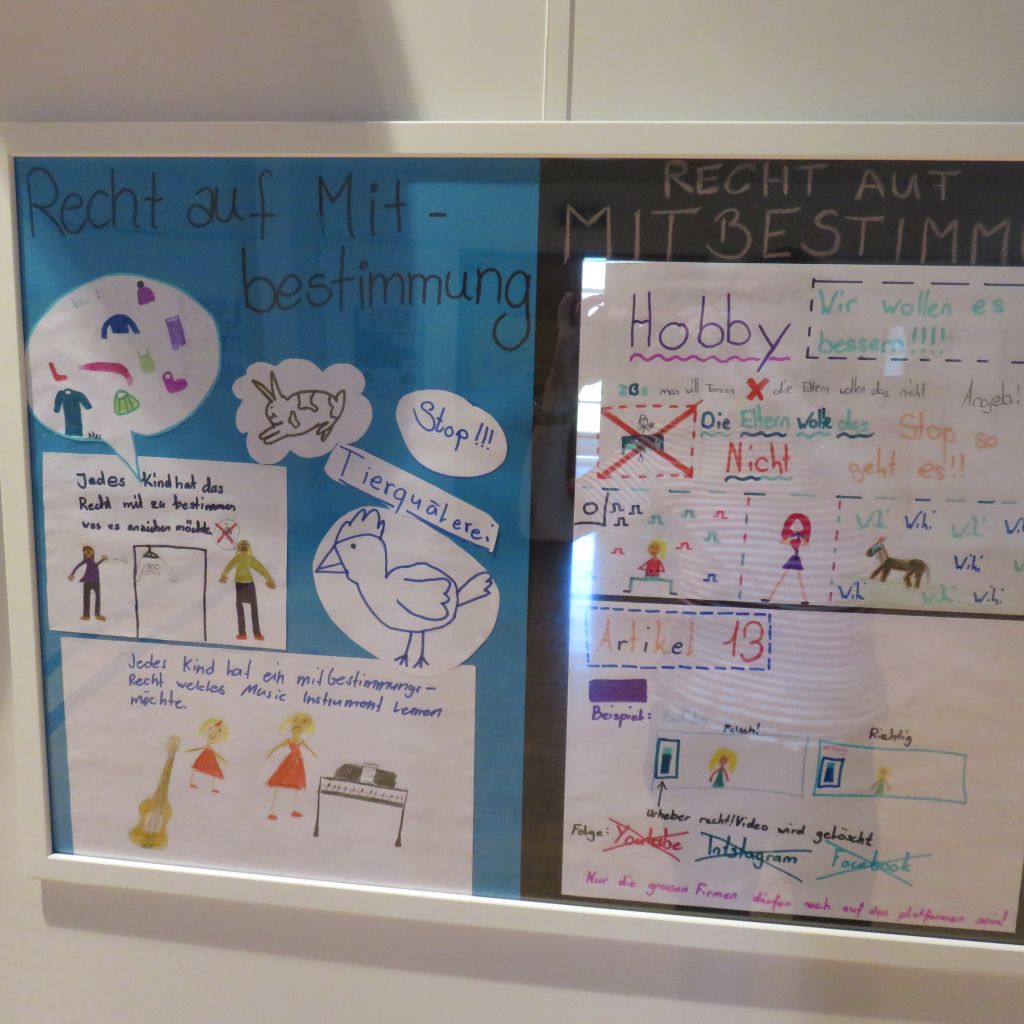 Recht auf Mit-
bestimmung
Stop!!!
Tierquälerei
Jedes Kind hat das
Recht mit zu bestimmen
was es anziehen möchte.
Jedes Kind hat ein mitbestimmungs-
Recht welches Music Instrument Lernen
möchte.
RECHT AUF
MITBESTIMMU
Hobby
Wir wollen es
bessern!!!!
zBs man will Tanzen X die Eltern wollen das nicht
Angeb!
Die Eltern wolle das
Nicht
Stop so
geht es!!
Wihi Wihi Wihi
Wihi
Wihi Wihi Wihi
Artikel 13
Beispiel: Youtube
Falsch!
Richtig
Urheber recht!!Video wird gelöscht
Folge: Youtube Intstagram Facebook
Nur die grossen Firmen dürfen noch auf den platformen sein!